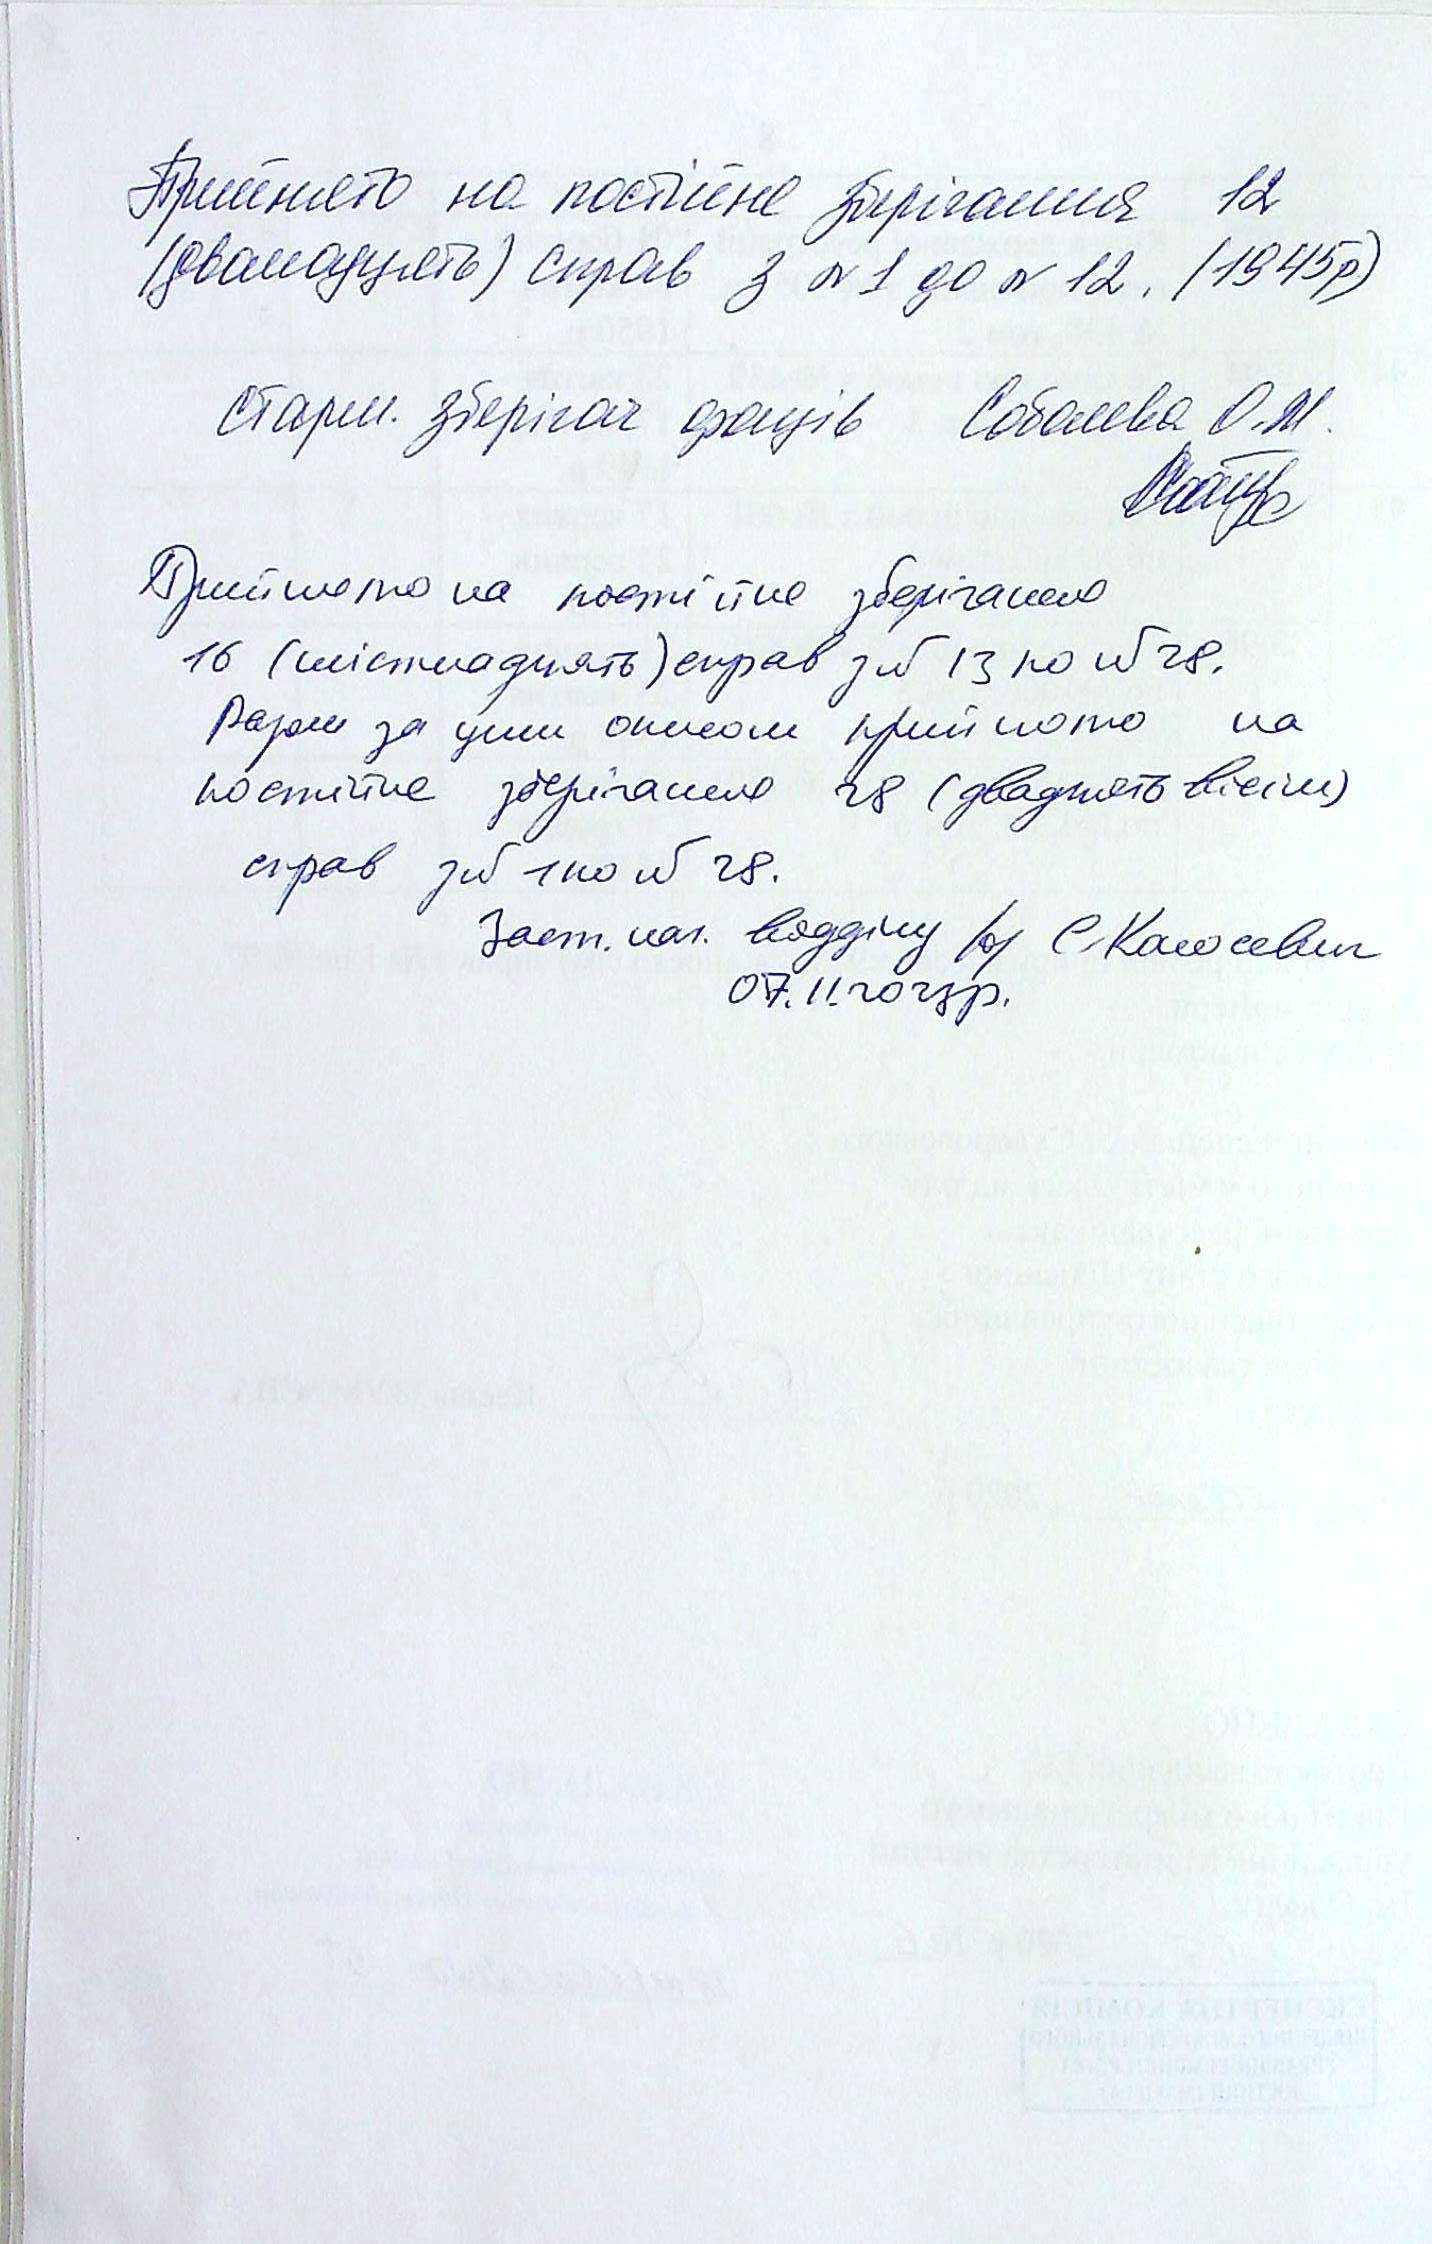 Прийнято на постійне зберігання 12
(дванадцять) справ з №1 до №12. (1945р)
Старш. зберігач фондів Соболева О.М.
Прийнято на постійне зберігання
16 (шістнадцять) справ з №13 по №28.
Разом за цим описом прийнято на
постійне зберігання 28 (двадцять вісім)
справ з №1 по №28.
Заст. нач. відділу С.
07.11.2023р.